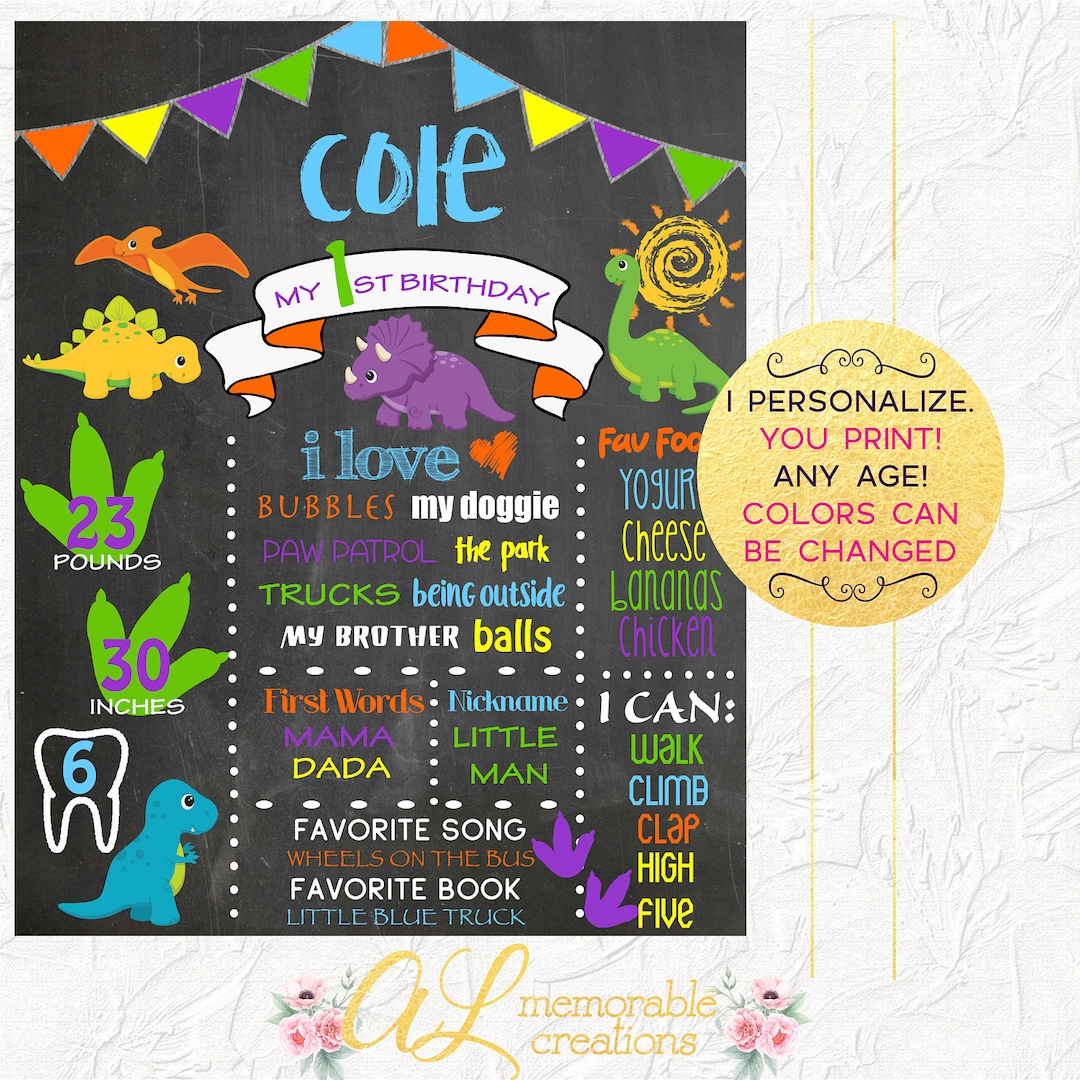 cole
MY 1ST BIRTHDAY
i love
BUBBLES my doggie
PAW PATROL the park
TRUCKS being outside
MY BROTHER balls
23
POUNDS
30
INCHES
6
First Words
MAMA
DADA
Nickname
LITTLE
MAN
FAVORITE SONG
WHEELS ON THE BUS
FAVORITE BOOK
LITTLE BLUE TRUCK
Fav
cheese
bananas
chicken
I CAN:
WALK
CLIMB
CLAP
HIGH
FIVE
I PERSONALIZE.
YOU PRINT!
ANY AGE!
COLORS CAN
BE CHANGED
AL memorable
creations